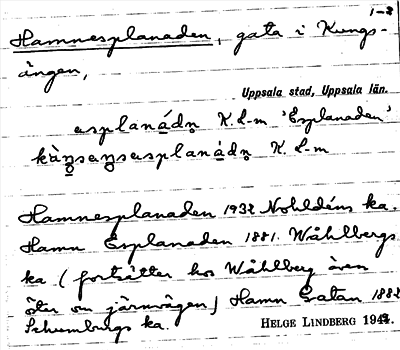 1-2
Hamnesplanaden, gata i Kungs-
ängen,
Uppsala stad, Uppsala län.
asplanádn K.L-m 'Esplanaden'
K. L-m
Hamnesplanaden 1932 Nohldéns ka.
Hamn Esplanaden 1881. Wåhlbergs
ka (fortsätter hos Wåhlberg även
öster om järnvägen) Hamn Gatan 1882
Schumburgs ka.
HELGE LINDBERG 194